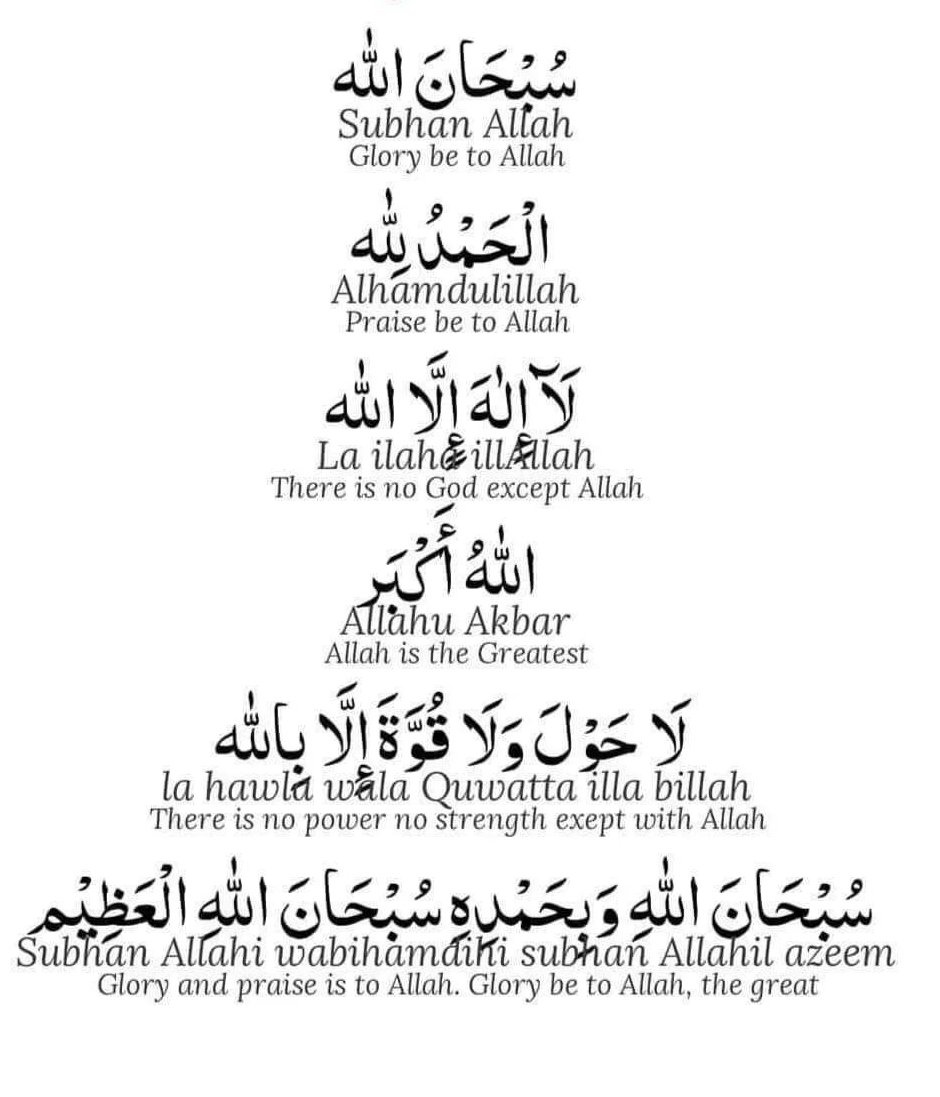 سُبْحَانَ اللّٰه
Subhan Allah
Glory be to Allah
الْحَمْدُ لِلّٰه
Alhamdulillah
Praise be to Allah
لَآ إِلٰهَ إِلَّا اللّٰه
La ilaha illAllah
There is no God except Allah
اللّٰهُ أَكْبَر
Allahu Akbar
Allah is the Greatest
لَا حَوْلَ وَلَا قُوَّةَ إِلَّا بِاللّٰه
la hawla wala Quwatta illa billah
There is no power no strength exept with Allah
سُبْحَانَ اللّٰهِ وَبِحَمْدِهِ سُبْحَانَ اللّٰهِ الْعَظِيْم
Subhan Allahi wabihamdihi subhan Allahil azeem
Glory and praise is to Allah. Glory be to Allah, the great